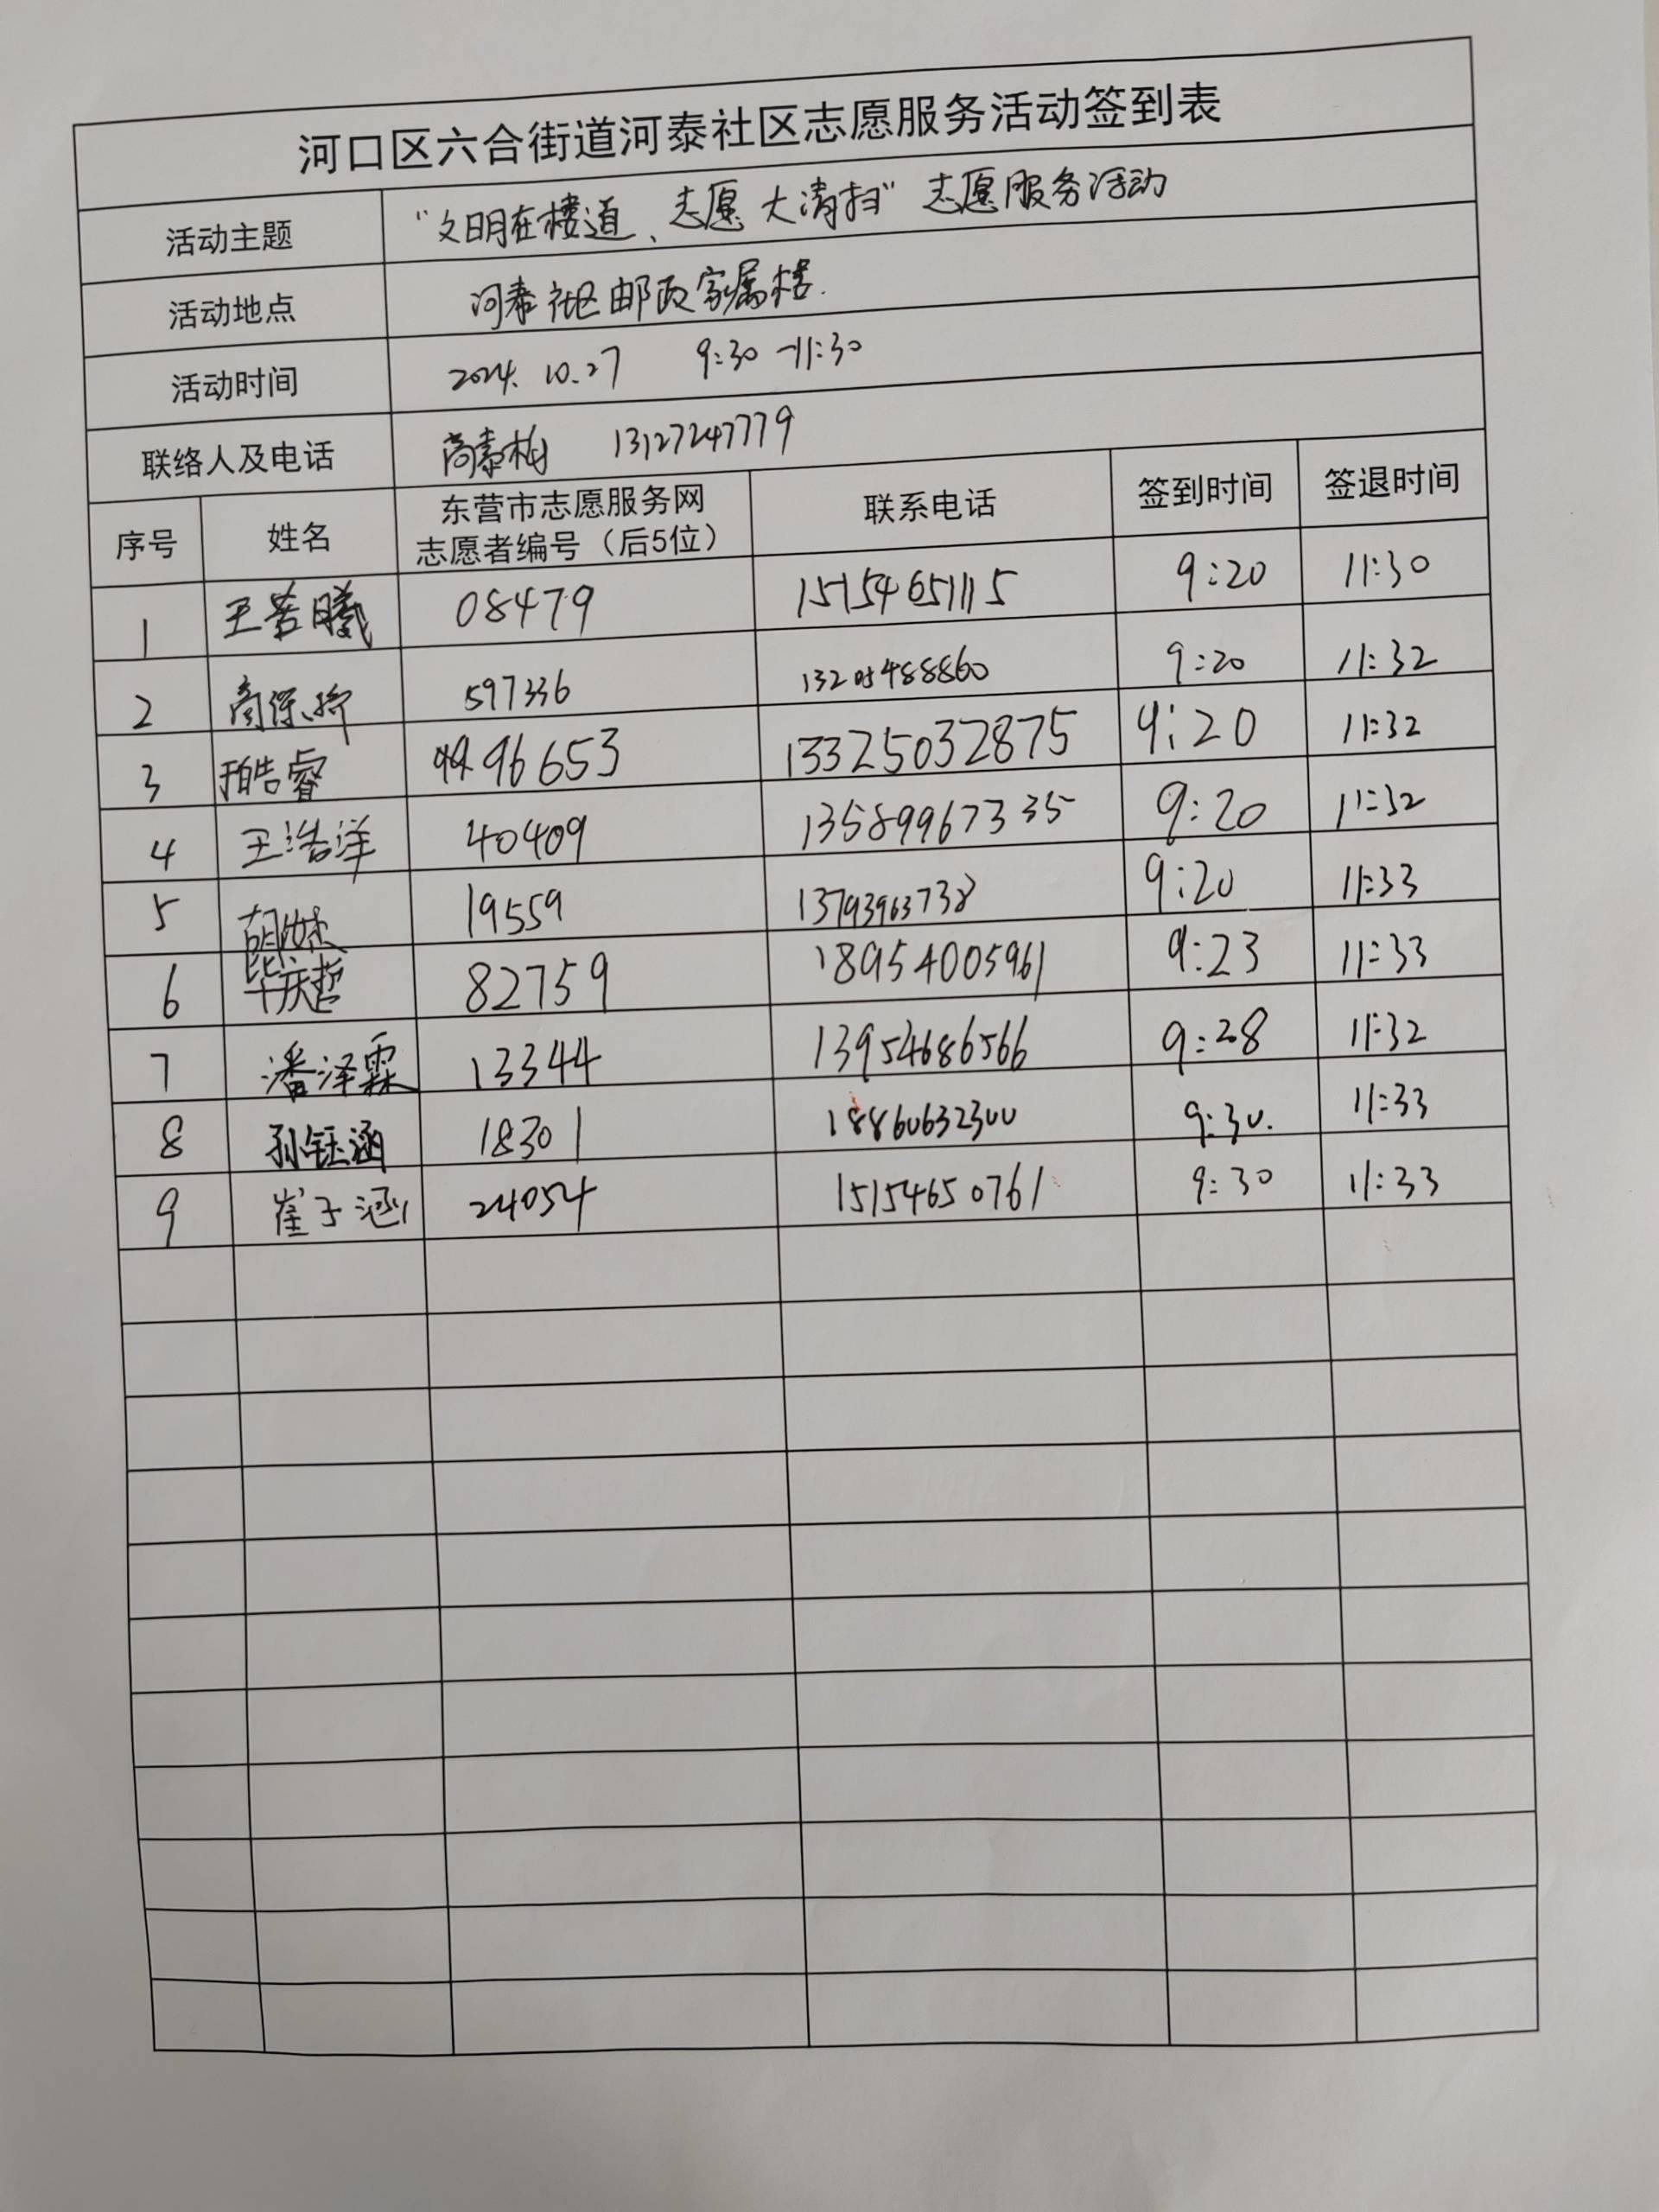 河口区六合街道河泰社区志愿服务活动签到表
活动主题 “文明在楼道、志愿大清扫”志愿服务活动
活动地点 河泰社区邮政家属楼.
活动时间 2024.10.27 9:30-11:30
联络人及电话 13127247779
序号 姓名 东营市志愿服务网 志愿者编号（后5位） 联系电话 签到时间 签退时间
1 王若曦 08479 15154651115 9:20 11:30
2 597336 9:20 11:32
3 96653 13325032875 9:20 11:32
4 王浩洋 40409 13589967335 9:20 11:32
5 19559 13793963738 9:20 11:33
6 毕庆哲 82759 18954005961 9:23 11:33
7 潘泽霖 13344 13954686566 9:28 11:32
8 孙钰涵 18301 18860632300 9:30. 11:33
9 崔子涵 24054 15154650761 9:30 11:33